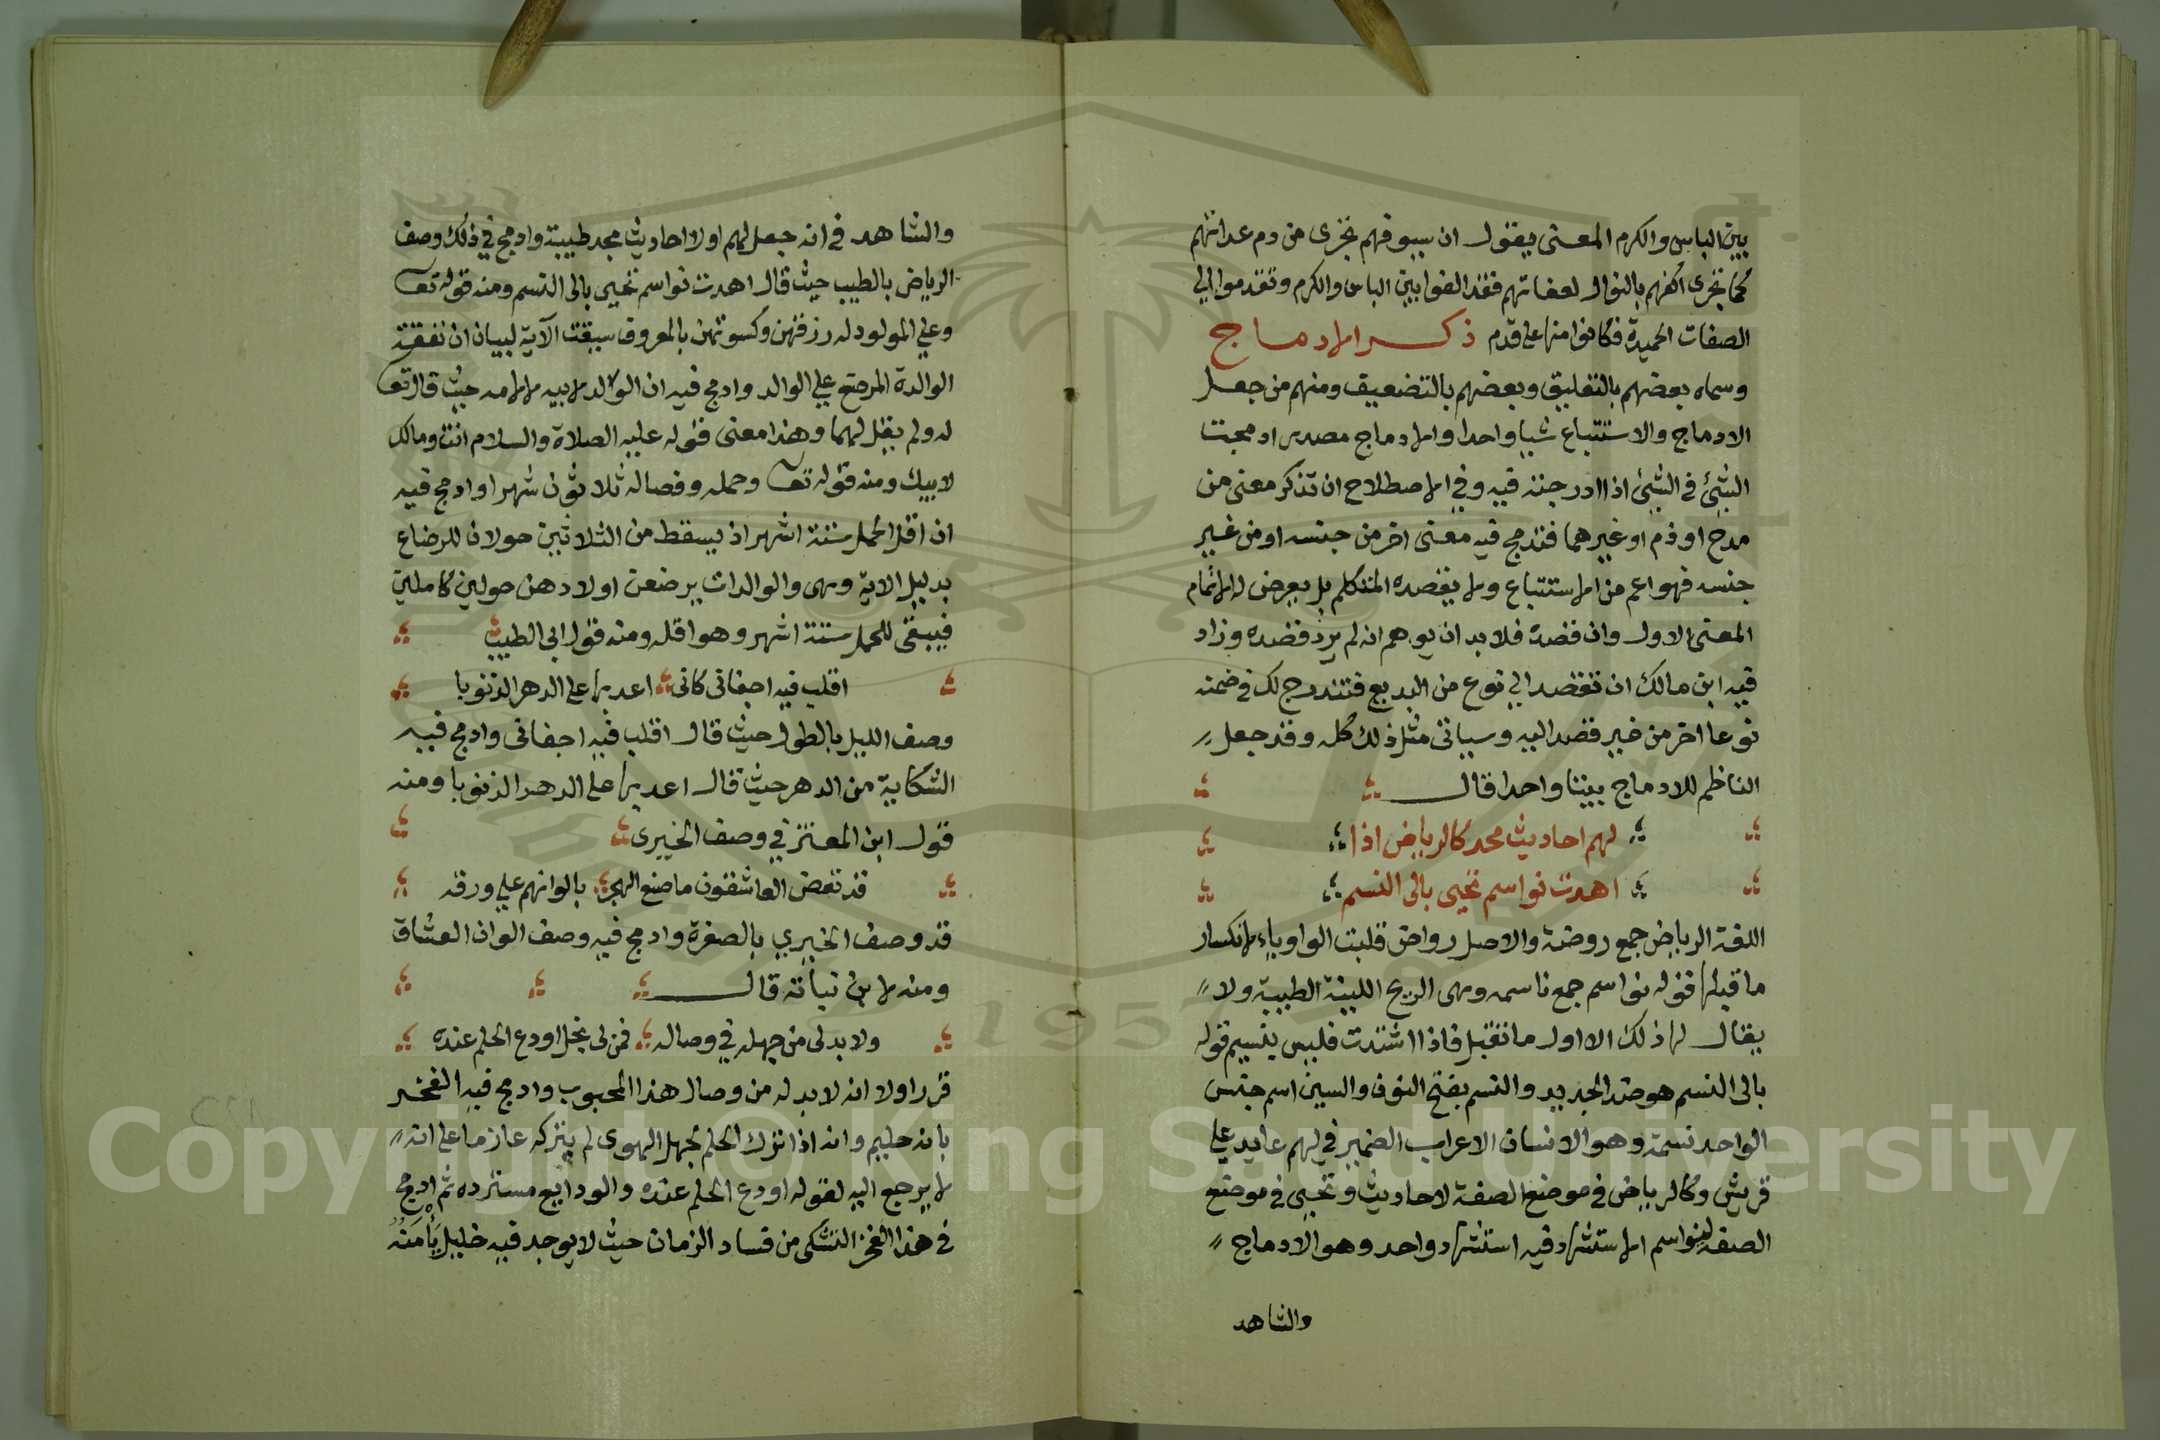 بين الباس والكرم المعنى يقول ان سيوفهم تجرى من دم عداتهم
كما تجرى اكفهم بالنوال لعفاتهم فقد الفوا بين الباس والكرم وتقدموا الي
الصفات الحميدة فكانوا منها على قدم ذكر الادماج
وسماه بعضهم بالتعليق وبعضهم بالتضعيف ومنهم من جعل
الادماج والاستتباع شيا واحدا والادماج مصدر ادمجت
الشئ في الشئ اذا ادرجته فيه وفي الاصطلاح ان تذكر معنى من
مدح او ذم او غيرهما فتدمج فيه معنى اخر من جنسه او من غير
جنسه فهو اعم من الاستتباع ولا يقصده المتكلم بل يعرض له لاتمام
المعنى الاول وان قصده فلا بد ان يوهم انه لم يرد قصده وزاد
فيه ابن مالك ان تقصد الي نوع من البديع فتندرج لك في ضمنه
نوعا اخر من غير قصد اليه وسياتى مثل ذلك كله وقد جعل
الناظم للادماج بيتا واحدا قال
لهم احاديث مجد كالرياض اذا
اهدت نواسم تحيى بالى النسم
اللغة الرياض جمع روضة والاصل رواض قلبت الواو ياء لانكسار
ما قبلها قوله نواسم جمع ناسمه وهى الريح اللينة الطيبة ولا
يقال لها ذلك الا اول ما تقبل فاذا اشتدت فليس بنسيم قوله
بالى النسم هو ضد الجديد والنسم بفتح النون والسين اسم جنس
الواحد نسمة وهو الانسان الاعراب الضمير في لهم عايد على
قريش وكالرياض في موضع الصفة لاحاديث وتحيى في موضع
الصفه لنواسم الاستشهاد فيه استشهاد واحد وهو الادماج
والشاهد
والشاهد في انه جعل لهم اولا احاديث مجد طيبة وادمج في ذلك وصف
الرياض بالطيب حيث قال اهدت نواسم تحيى بالى النسم ومنه قوله تعا
وعلي المولود له رزقهن وكسوتهن بالمعروف سيقت الآية لبيان ان نفقة
الوالدة المرضع علي الوالد وادمج فيه ان الولد لابيه لا لامه حيث قال تعا
له ولم يقل لهما وهذا معنى قوله عليه الصلاة والسلام انت ومالك
لابيك ومنه قوله تعا وحمله وفصاله ثلاثون شهرا وادمج فيه
ان اقل الحمل ستة اشهر اذ يسقط من الثلاثين حولان للرضاع
بدليل الاية وهى والوالدات يرضعن اولادهن حولين كاملين
فيبقى للحمل ستة اشهر وهو اقله ومنه قول ابى الطيب
اقلب فيه اجفانى كانى اعد بها على الدهر الذنوبا
وصف الليل بالطول حيث قال اقلب فيه اجفانى وادمج فيه
الشكاية من الدهر حيث قال اعد بها على الدهر الذنوبا ومنه
قول ابن المعتز في وصف الخيرى
قد نفض العاشقون ما صنع الهجر بالوانهم علي ورقه
قد وصف الخيري بالصفرة وادمج فيه وصف الوان العشاق
ومنه لابن نباتة قال
ولا بد لى من جهله في وصاله فمن لى بخل اودع الحلم عنده
قرر اولا انه لا بد له من وصال هذا المحبوب وادمج فيه الفخر
بانه حليم وانه اذا ترك الحلم لجهل الهوى لم يتركه عازما على انه
لا يرجع اليه لقوله اودع الحلم عنده والودايع مسترده ثم ادمج
في هذا الفخر التشكى من فساد الزمان حيث لا يوجد فيه خليل يأمنه
Copyright © King Saud University
1957